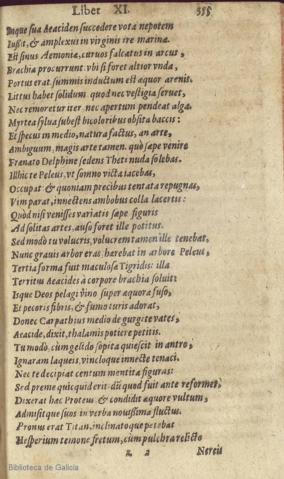 Liber XI. 355
Inque sua Aeaciden succedere vota nepotem
Iussit, & amplexus in virginis ire marinæ.
Est sinus Aemonia, curuos falcatus in arcus,
Brachia procurrunt. vbi si foret altior vnda,
Portus erat. summis inductum est æquor arenis.
Littus habet solidum. quod nec vestigia seruet,
Nec remoretur iter. nec apertum pendeat alga.
Myrtea sylua subest bicoloribus obsita baccis:
Et specus in medio, natura factus, an arte,
Ambiguum, magis arte tamen. quò sæpe venire
Frænato Delphine sedens Theti nuda solebas.
Illhic te Peleus, vt somno victa iacebas,
Occupat & quoniam precibus tentata repugnas,
Vim parat, innectens ambobus colla lacertis:
Quòd nisi venisses variatis sæpe figuris
Ad solitas artes, auso foret ille potitus.
Sed modò tu volucris, volucrem tamen ille tenebat,
Nunc grauis arbor eras, hærebat in arbore Peleus,
Tertia forma fuit maculosæ Tigridis: illa
Territus Aeacides à corpore brachia soluit:
Isque Deos pelagi vino super æquora fuso,
Et pecoris fibris, & fumo turis adorat,
Donec Carpathius medio de gurgite vates,
Aeacide, dixit, thalamis potiere petitis.
Tu modò, cùm gelido sopita quiescit in antro,
Ignaram laqueis, vincloque innecte tenaci.
Nec te decipiat centum mentita figuras:
Sed preme quicquid erit. dū quod fuit ante reformet,
Dixerat hæc Proteus & condidit æquore vultum,
Admisitque suos in verba nouissima fluctus.
Pronus erat Titan, inclinatoque petebat
Hesperium temone fretum, cùm pulchra relicto
Z 2 Nereis
Biblioteca de Galicia